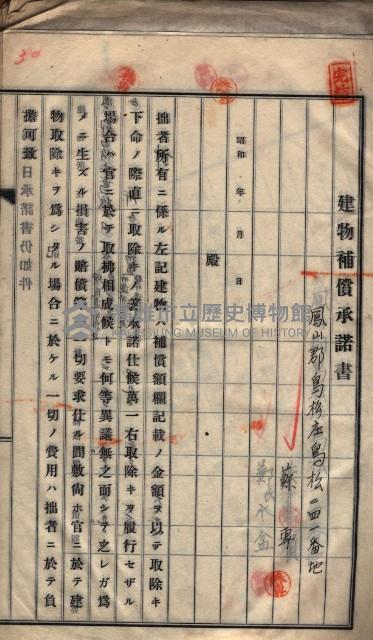 建物補償承諾書
鳳山郡鳥松庄鳥松二四一番地
蘇
鄭氏水金
昭和　年　月　日
殿
拙者所有ニ係ル左記建物ハ補償額欄記載ノ金額ヲ以テ取除キ
下命ノ際直ニ取除キノ義承諾仕候萬一右取除キヲ履行セザル
場合ハ官ニ於テ取拂相成候トモ何等異議無之而シテ之レガ爲
メニ生ズル損害ノ賠償等一切要求仕ル間敷尙ホ官ニ於テ建
物取除キヲ爲シタル場合ニ於ケル一切ノ費用ハ拙者ニ於テ負
擔可致日承諾書仍如件
完
高雄市立歷史博物館
KAOHSIUNG MUSEUM OF HISTORY